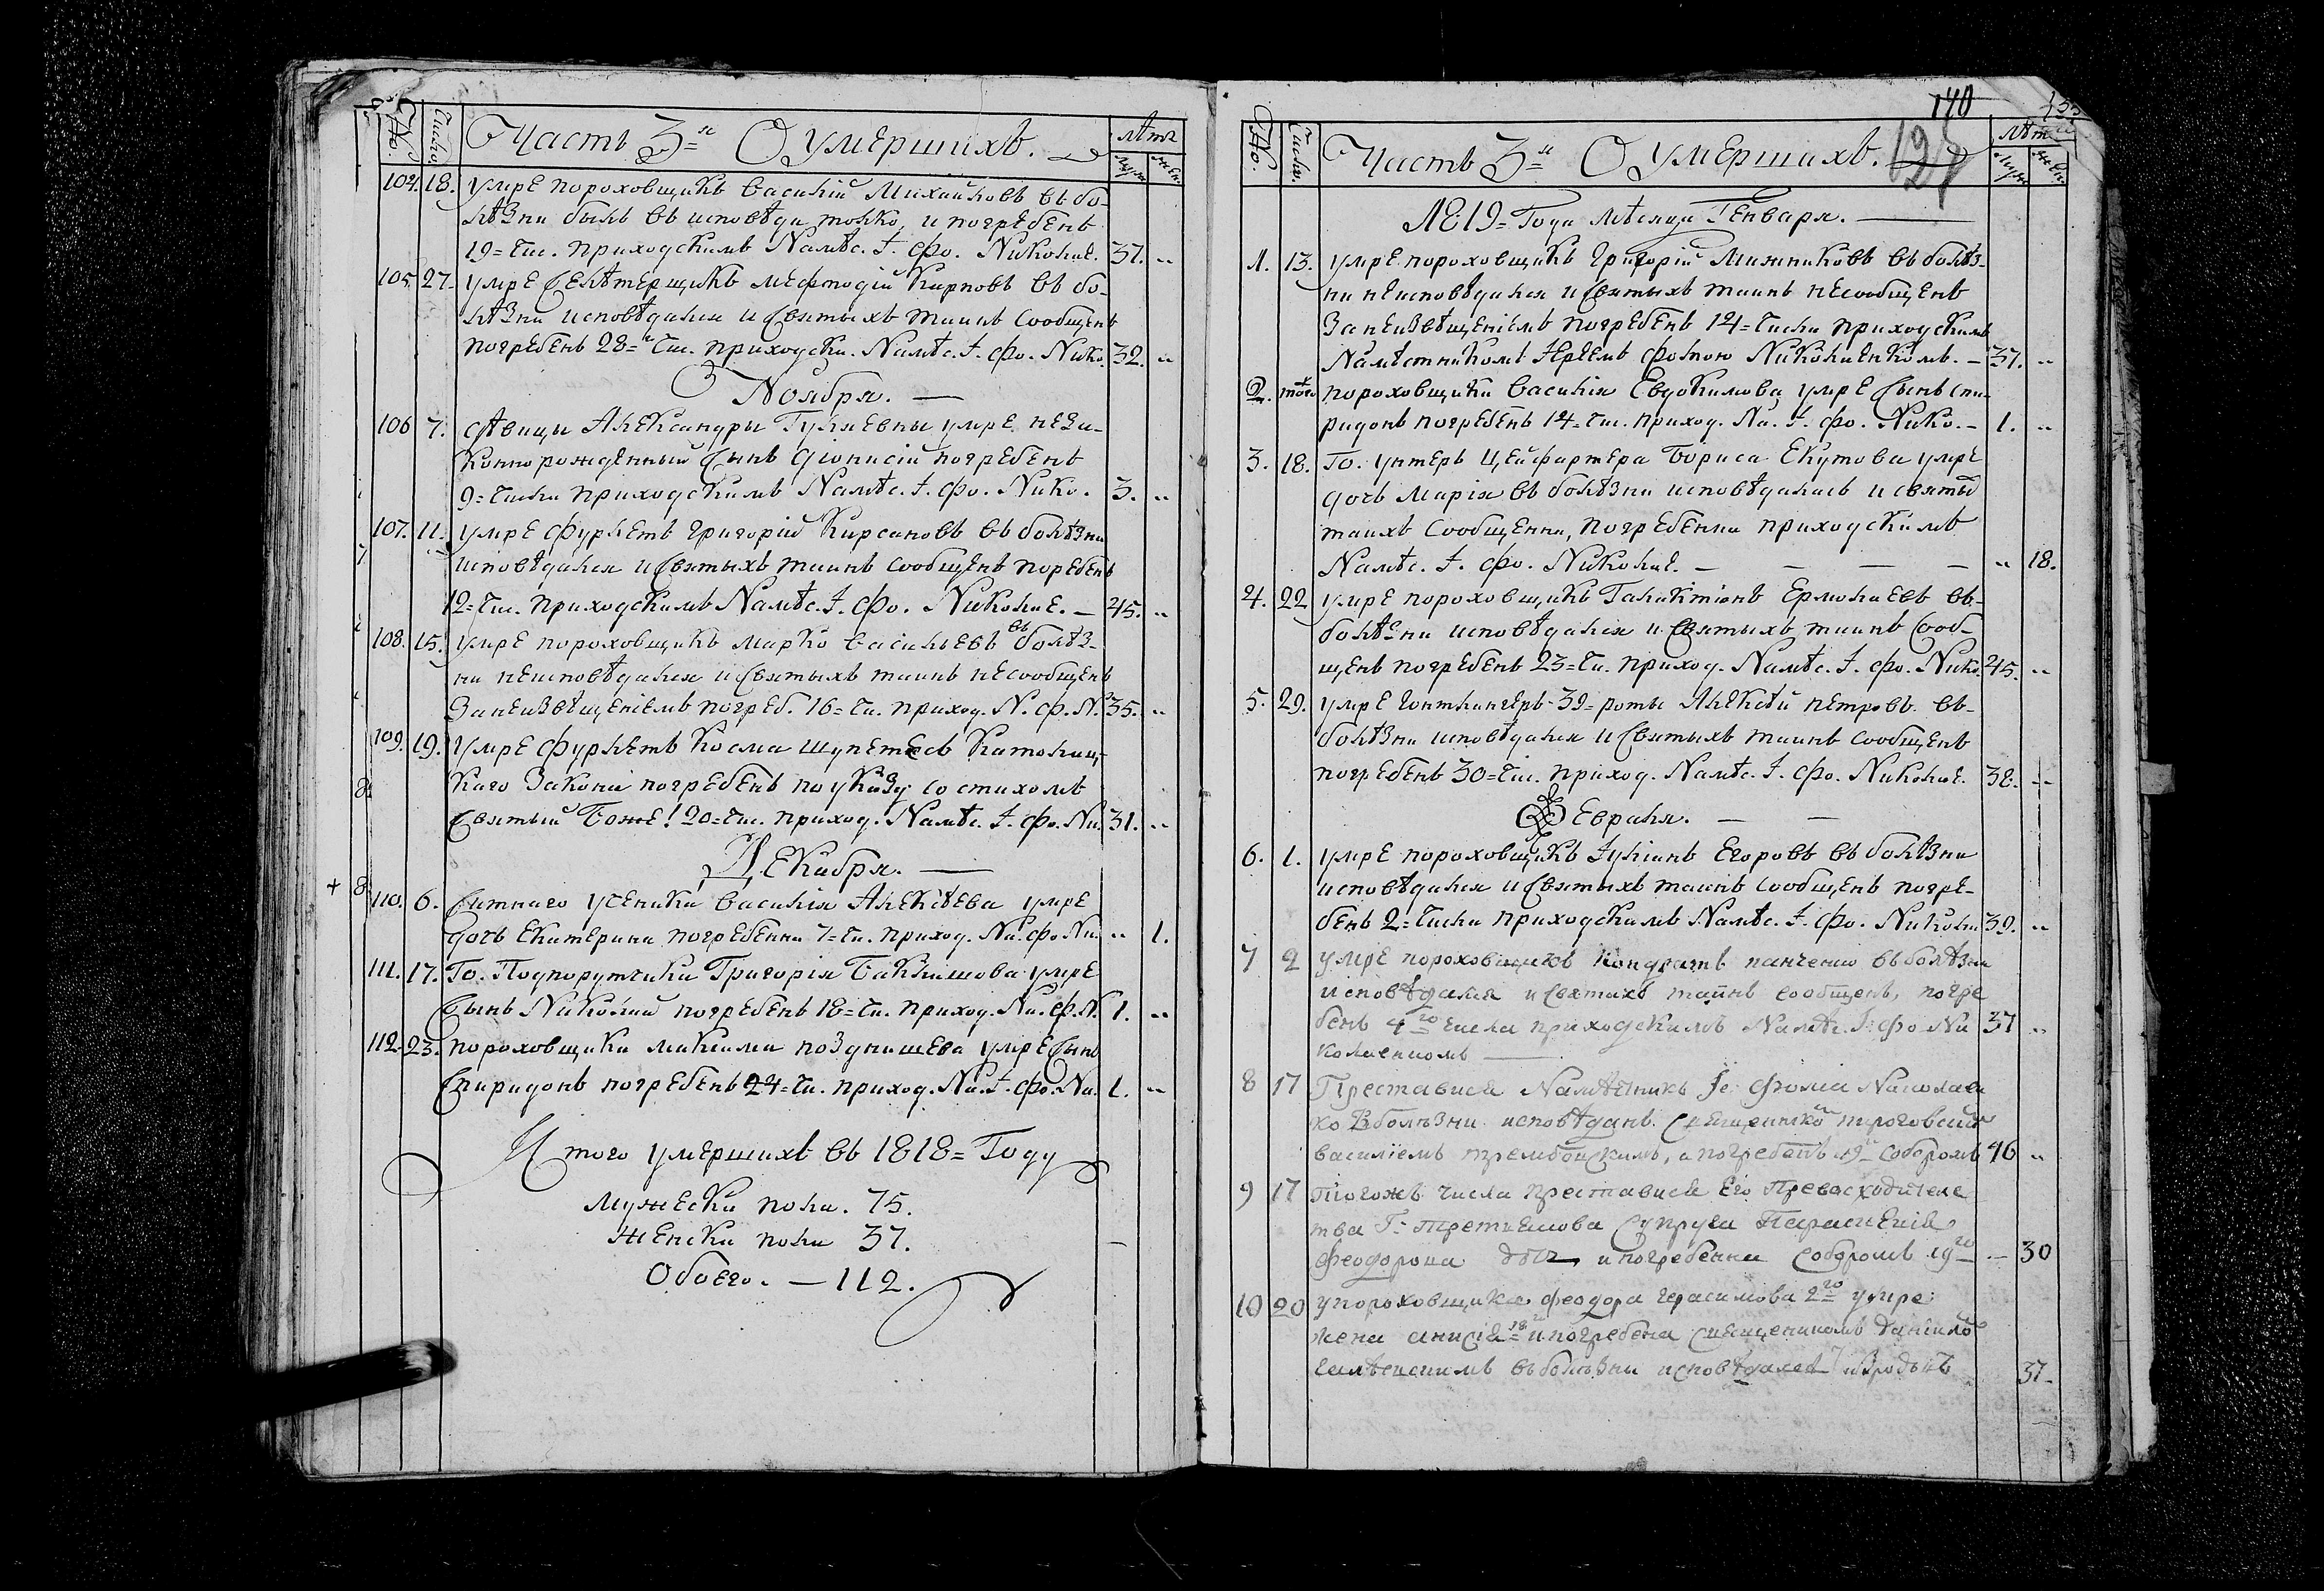 №. Число Часть 3я О Умершихъ. лѣта муж. жен.
104. 18. Умре пороховщикъ Василій Михайловъ въ бо-
лѣзни былъ въ исповѣди токмо, и погребенъ
19= чис. приходскимъ Намѣс. І. Фо. Николае. 37. „
105. 27. Умре Селѣтерщикъ Мефтодій Карповъ въ бо-
лѣзни исповѣдался и Святыхъ таинъ сообщенъ
погребенъ 28= чис. приходски. Намѣс. І. Фо. Нико. 32. „
Ноября.
106 7. дѣвицы Александры Гуляевны умре неза-
коннорожденный сынъ Діонисій погребенъ
9= числа приходскимъ Намѣс. І. Фо. Нико. 3. „
107. 11. Умре Фурлетъ Григорій Кирсановъ въ болѣзни
исповѣдался и Святыхъ таинъ сообщенъ поребенъ
12= чис. приходскимъ Намѣс. І. Фо. Николае. 45. „
108. 15. Умре пороховщикъ Марко Васильевъ въ болѣз-
ни неисповѣдался и Святыхъ таинъ несообщенъ
Занеизвѣщеніемъ погреб. 16= чи. приход. Н. Ф. Н. 35. „
109. 19. Умре Фурлетъ Косма Католиц-
каго Закона погребенъ по указу со стихомъ
Святый Боже! 20= чис. приход. Намѣс. І. Фо. Ни. 31. „
Декабря.
110. 6. ученика Василія Алексѣева умре
дочь Екатерина погребенна 7= чи. приход. На. Фо Ни „ 1.
111. 17. Го. Подпорутчика Григорія Бакланова умре
Сынъ Николай погребенъ 18= чи. приход. На. Ф. Н. 1. „
112. 23. пороховщика Максима позднишева умре Сынъ
Спиридонъ погребенъ 24= чи. приход. На. І. Фо. Ни. 1. „
Итого умершихъ въ 1818= Году
Мужеска пола. 75.
Женска пола 37.
Обоего. — 112.
140
№. Числ. Часть 3я О Умершихъ. лѣта муж. жен.
1819= Года Мѣсяца Генваря.
1. 13. Умре пороховщикъ Григорій Мижниковъ въ болѣз-
ни неисповѣдался и Святыхъ таинъ несообщенъ
Занеизвѣщеніемъ погребенъ 14= числа приходскимъ
Намѣстникомъ Іереемъ Фомою Николаенкомъ. — 37. „
2. тогож пороховщика Василія Евдокимова умре Сынъ Спи-
ридонъ погребенъ 14= чис. приход. На. І. Фо. Нико. — 1. „
3. 18. Го. унтеръ Цейфартера Бориса Екутова умре
дочь Марія въ болѣзни исповѣдалась и святы
таихъ Сообщенна, погребенна приходскимъ
Намѣс. І. Фо. Николае. — — — — „ 18.
4. 22 Умре пороховщикъ Галактіонъ Ермолаевъ въ-
болѣзни исповѣдался и Святыхъ таинъ Сооб-
щенъ погребенъ 23= чи. приход. Намѣс. І. Фо. Нико. 45. „
5. 29. Умре гонтлангеръ 39= роты Алексѣй петровъ въ-
болѣзни исповѣдался и Святыхъ таинъ сообщенъ
погребенъ 30= чис. приход. Намѣс. І. Фо. Николае. 38. „
Февраля. — —
6. 1. Умре пороховщикъ Іуліанъ Егоровъ въ болѣзни
исповѣдался и Святыхъ таинъ сообщенъ погре-
бенъ 2= числа приходскимъ Намѣс. І. Фо. Никола 39. „
7 2 Умре пороховщикъ Кондратъ панченко въ болѣзни
исповѣдался и Святыхъ таинъ сообщенъ, погре
бенъ 4го числа приходскимъ Намѣс. І. Фо Ни 37 „
колаенкомъ
8 17 Преставися Намѣстникъ Іе. Фома Николаен
ко Вболѣзни исповѣданъ Священико
василіемъ, а погребенъ 19 Соборомъ 46 „
9 17 Тогожъ числа преставися Его Превосходителс
тва Г. Супруга Параскевія
Феодорова и погребенна Соборомъ 19го — 30
10 20 у пороховщика Феодора Герасимова 2го умре
жена анисія 18 и погребена Священикомъ Даніило
въ болѣзни исповѣдалса 37